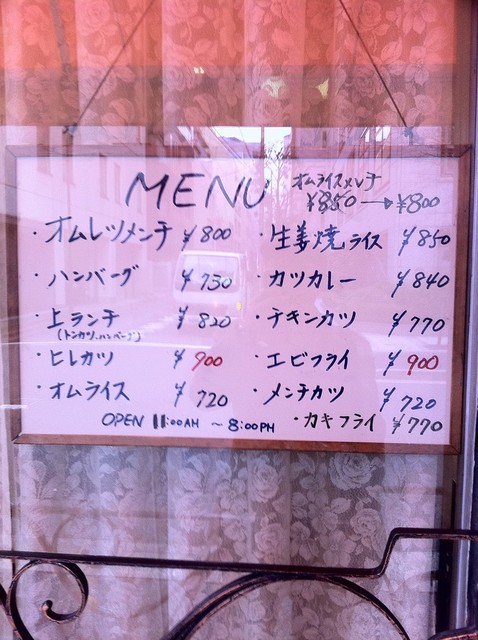 MENU
オムライスメンチ
¥850→¥800
・オムレツメンチ ¥800
・ハンバーグ ¥750
・上ランチ ¥820
(トンカツ、ハンバーグ)
・ヒレカツ ¥900
・オムライス ¥720
・生姜焼ライス ¥850
・カツカレー ¥840
・チキンカツ ¥770
・エビフライ ¥900
・メンチカツ ¥720
・カキフライ ¥770
OPEN 11:00AM ～ 8:00PM